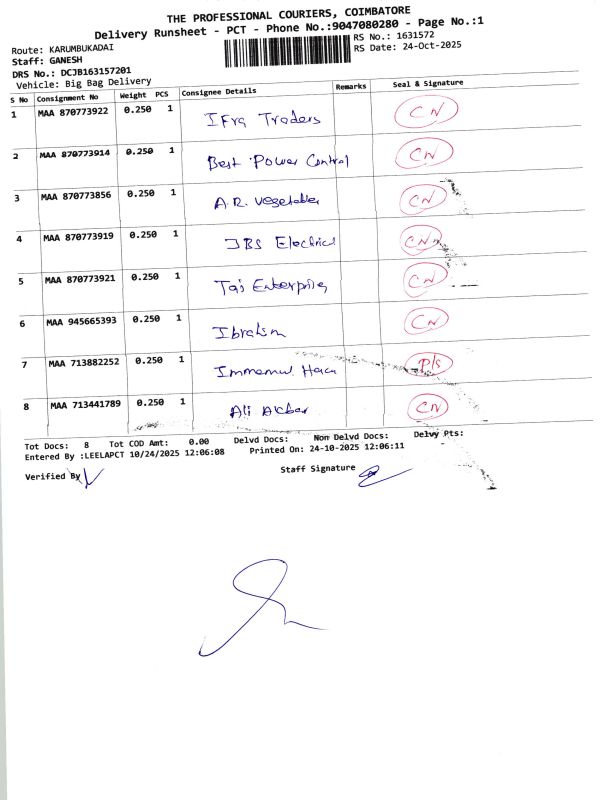 THE PROFESSIONAL COURIERS, COIMBATORE
Delivery Runsheet - PCT - Phone No.:9047080280 - Page No.:1
Route: KARUMBUKADAI
RS No.: 1631572
Staff: GANESH
RS Date: 24-Oct-2025
DRS No.: DCJB163157201
Vehicle: Big Bag Delivery
S No Consignment No Weight PCS Consignee Details Remarks Seal & Signature
1 MAA 870773922 0.250 1 IFra Traders CN
2 MAA 870773914 0.250 1 Best Power Control CN
3 MAA 870773856 0.250 1 A.R. vegetables CN
4 MAA 870773919 0.250 1 JBS Electrical CN
5 MAA 870773921 0.250 1 Taj Enterprises CN
6 MAA 945665393 0.250 1 Ibrahim CN
7 MAA 713882252 0.250 1 P/s
8 MAA 713441789 0.250 1 Ali Akbar CN
Tot Docs: 8 Tot COD Amt: 0.00 Delvd Docs: Non Delvd Docs: Delvy Pts:
Entered By :LEELAPCT 10/24/2025 12:06:08 Printed On: 24-10-2025 12:06:11
Verified By Staff Signature